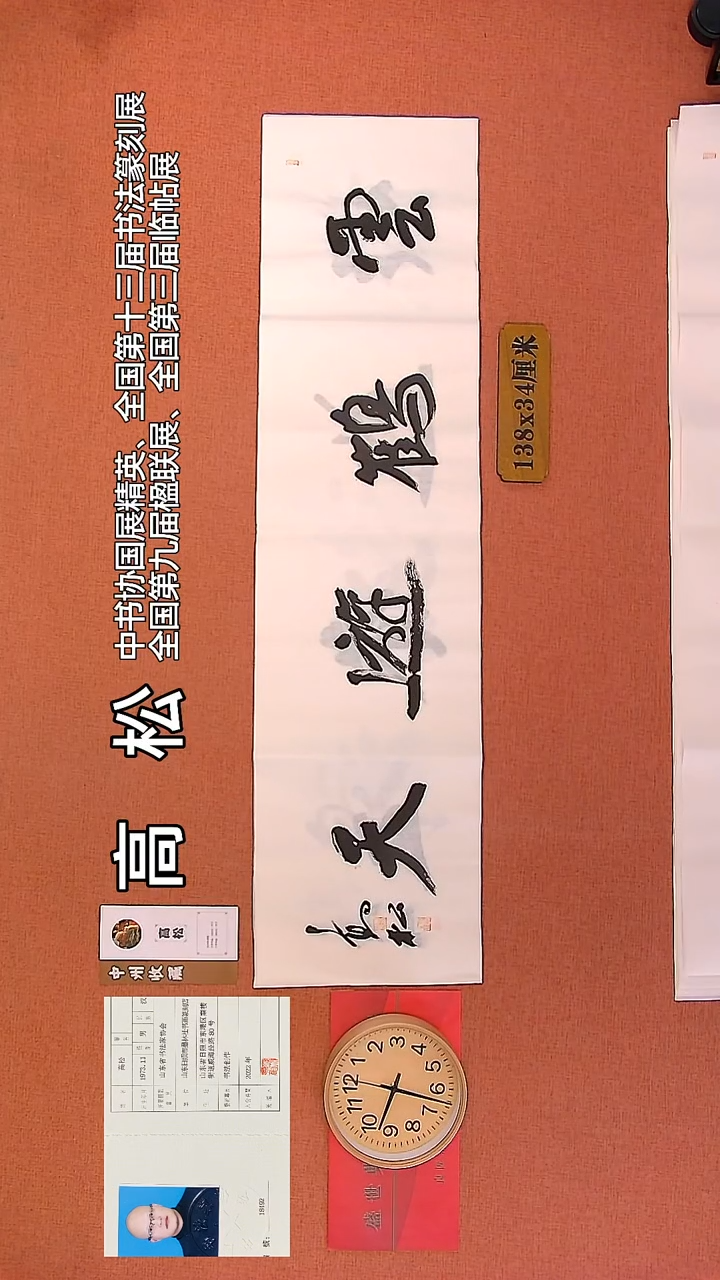 高 松
中书协国展精英、全国第十三届书法篆刻展
全国第九届楹联展、全国第三届临帖展
雲鶴遊天
高松
138x34厘米
高松
中州收藏
高松
1973.11
男
汉
山东省书法家协会
书法创作
2022年
18192
盛世
12
1
2
3
4
5
6
7
8
9
10
11